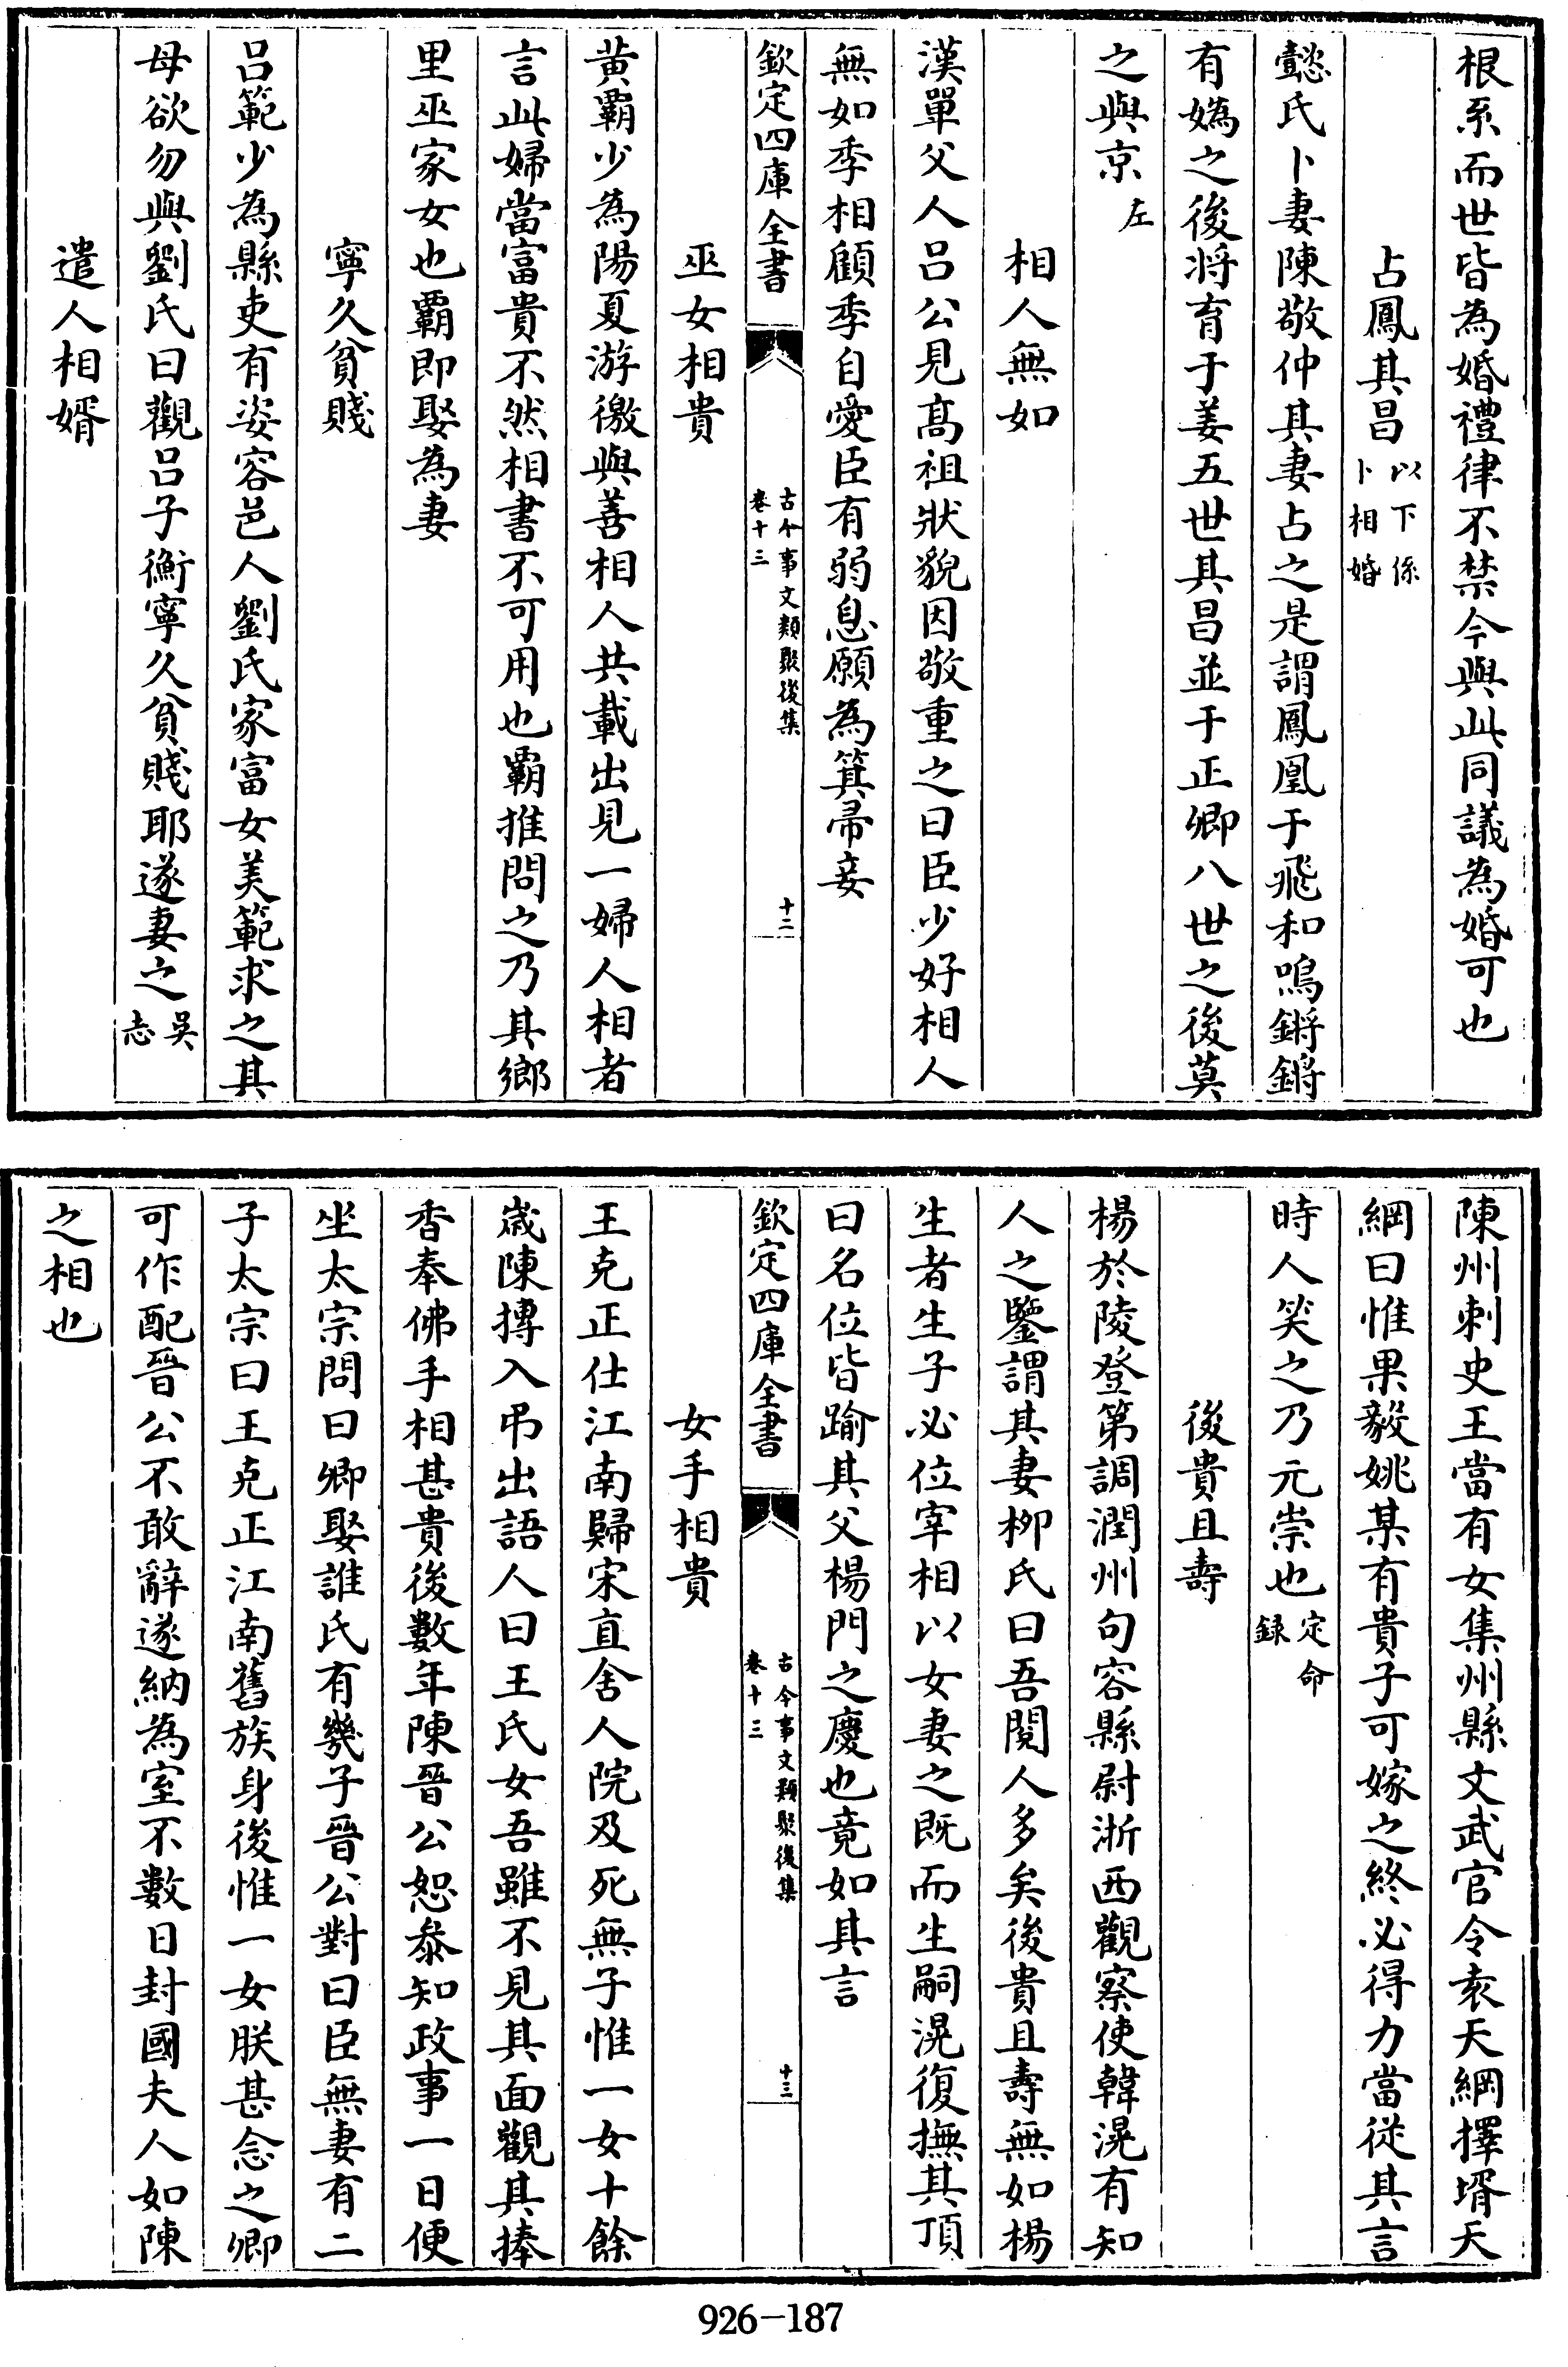 根系而世皆為婚禮律不禁今與此同議為婚可也
占鳳其昌以下係卜相婚
懿氏卜妻陳敬仲其妻占之是謂鳳凰于飛和鳴鏘鏘
有媯之後將育于姜五世其昌並于正卿八世之後莫
之與京左
相人無如
漢單父人呂公見高祖狀貌因敬重之曰臣少好相人
無如季相顧季自愛臣有弱息願為箕帚妾
欽定四庫全書 古今事文類聚後集 卷十三 十二
巫女相貴
黄霸少為陽夏游徼與善相人共載出見一婦人相者
言此婦當富貴不然相書不可用也霸推問之乃其鄉
里巫家女也霸即娶為妻
寧久貧賤
呂範少為縣吏有姿容邑人劉氏家富女美範求之其
母欲勿與劉氏曰觀呂子衡寧久貧賤耶遂妻之吳志
遣人相婿
陳州刺史王當有女集州縣文武官令袁天綱擇壻天
綱曰惟果毅姚某有貴子可嫁之終必得力當從其言
時人笑之乃元崇也定命録
後貴且壽
楊於陵登第調潤州句容縣尉浙西觀察使韓滉有知
人之鑒謂其妻柳氏曰吾閱人多矣後貴且壽無如楊
生者生子必位宰相以女妻之既而生嗣滉復撫其頂
曰名位皆踰其父楊門之慶也竟如其言
欽定四庫全書 古今事文類聚後集 卷十三 十三
女手相貴
王克正仕江南歸宋直舍人院及死無子惟一女十餘
嵗陳摶入弔出語人曰王氏女吾雖不見其面觀其捧
香奉佛手相甚貴後數年陳晉公恕叅知政事一日便
坐太宗問曰卿娶誰氏有幾子晉公對曰臣無妻有二
子太宗曰王克正江南舊族身後惟一女朕甚念之卿
可作配晉公不敢辭遂納為室不數日封國夫人如陳
之相也
926-187